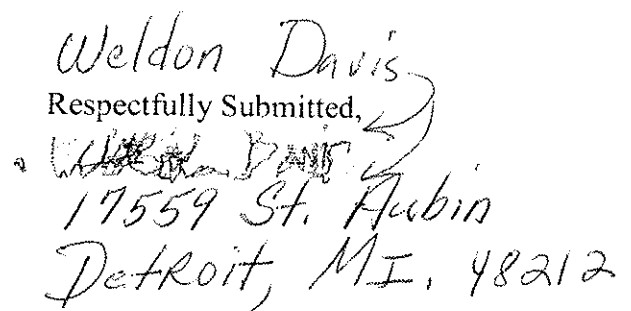 Weldon Davis
Respectfully Submitted,
17559 St. Aubin
Detroit, MI. 48212